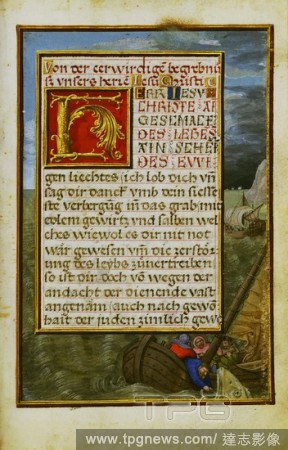 Von der eerwirdigē begrebnu
s unsers herrē Jesu Christi
ER IESV
CHRISTE
GESCMACK
DES LEBES
SCHEI
DES EVVI
gen liechtes ich lob dich vn̄
sag dir danck vmb dein
verbergūg in das grab mit
edlem gewirtz vnd salben wel
ches wiewol es dir nit not
wär gewesen vm̄ die zerstö
rung des leybs zūuertreiben
so ist dir doch vō wegen der
andacht der dienende vast
angenäm auch nach gewō
hait der juden zimlich gewe
TPG
www.tpgnews.com/達志影像